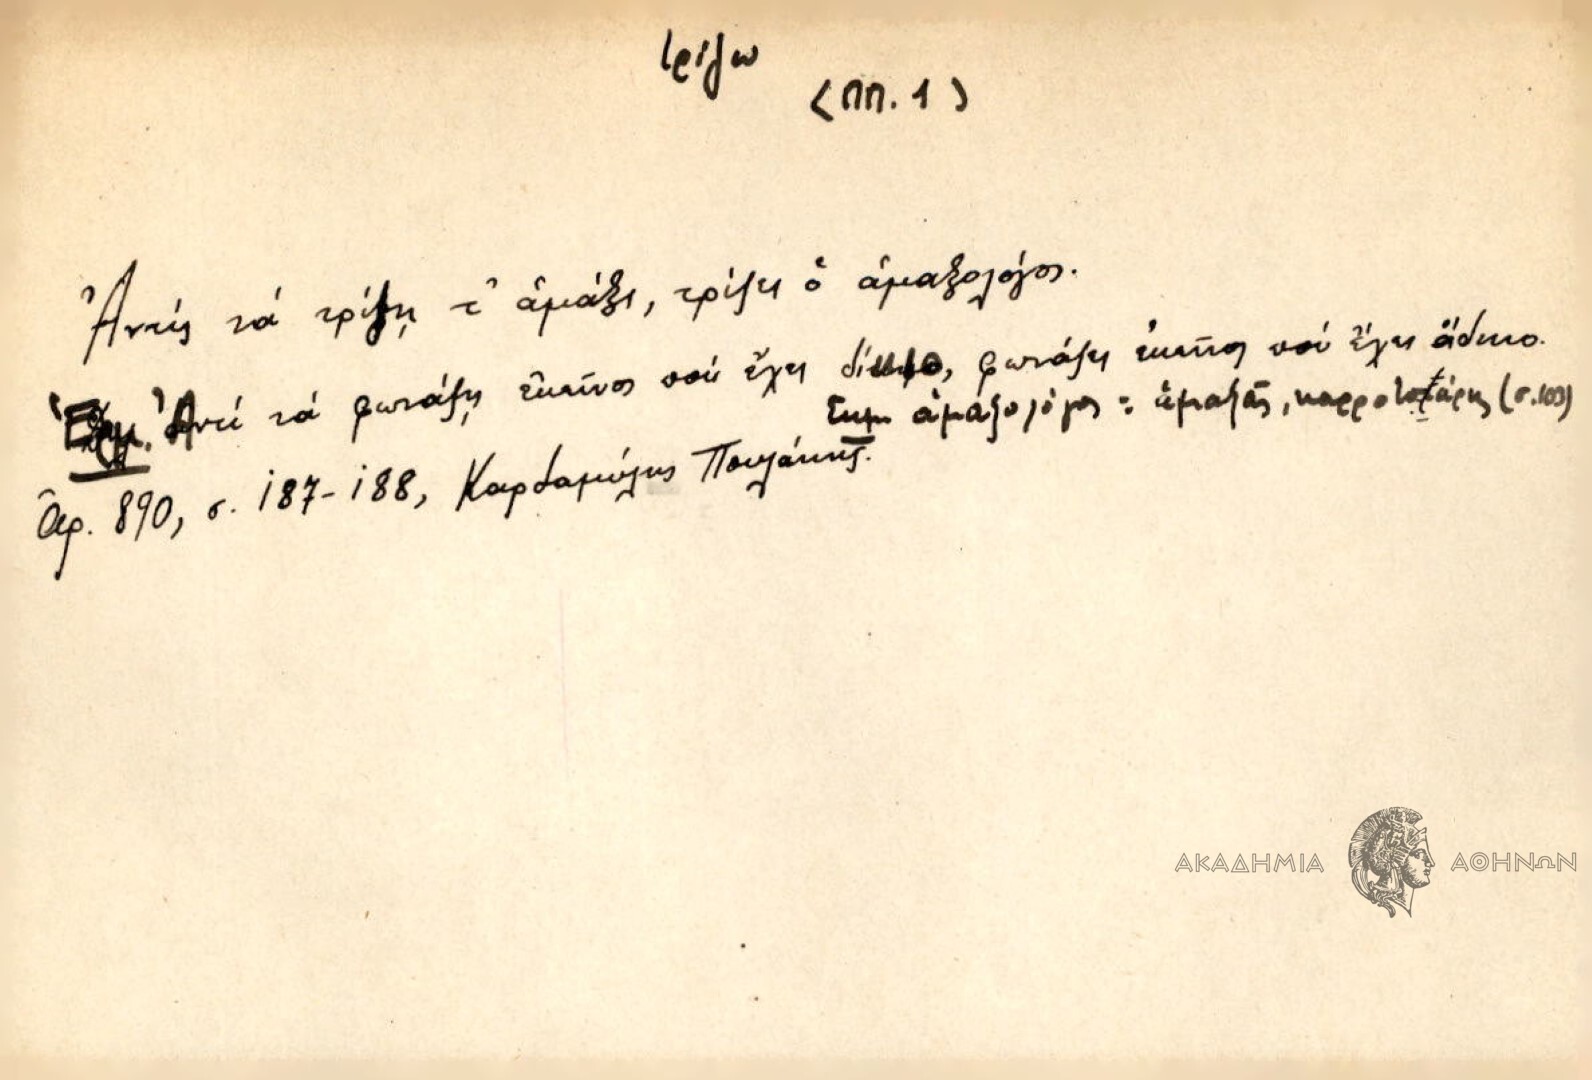 τρίζω
(ΠΠ. 1)
Ἀντίς νά τρίζῃ τ' ἁμάξι, τρίζει ὁ ἁμαξολόγος.
Ἑρμ. Ἀντί νά φωνάζῃ ἐκεῖνος πού ἔχει δίκηο, φωνάζει ἐκεῖνος πού ἔχει ἄδικο.
Σημ ἁμαξολόγος = ἁμαξᾶς, (σ. 103)
Ἀρ. 890, σ. 187-188, Καρδαμύλης
ΑΚΑΔΗΜΙΑ ΑΘΗΝΩΝ